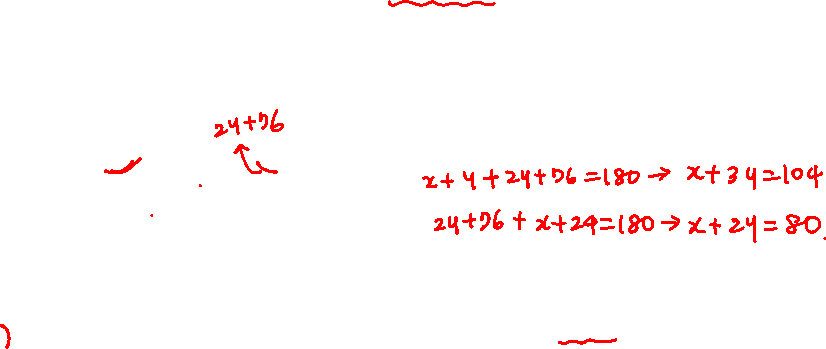 2y+76
x+y+2y+76=180→x+3y=104
2y+76+x+24=180→x+2y=80.